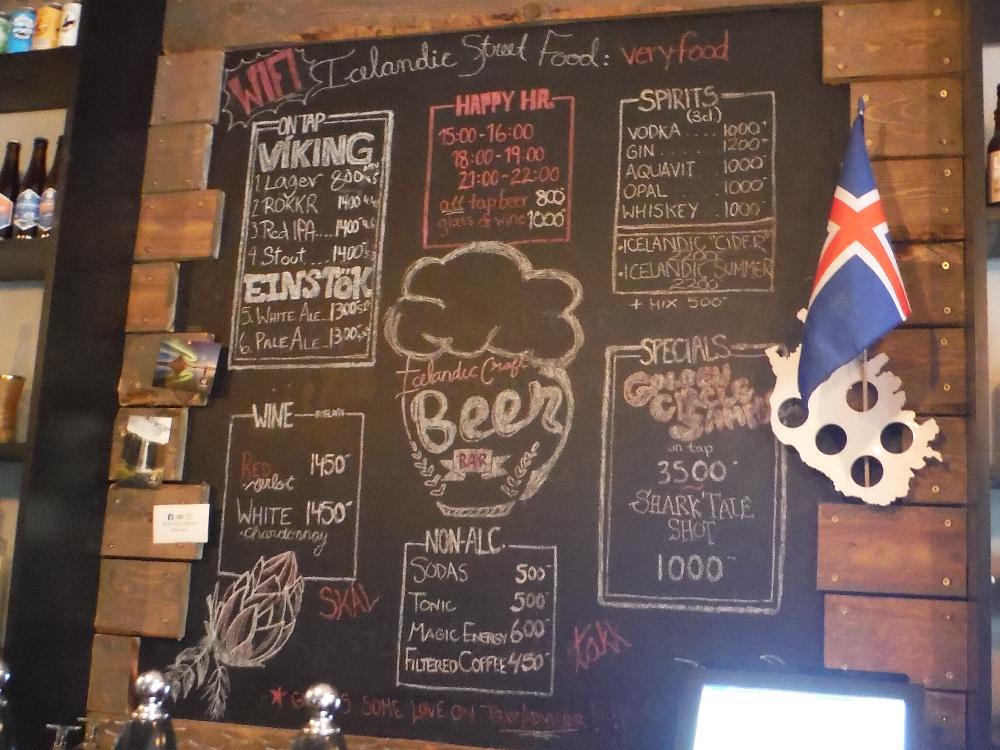 WIFI
Icelandic Street Food: very food
ON TAP
VÍKING
1 Lager 800
2 ROKKR 1400
3 Red IPA.... 1400
4 Stout.... 1400
EINSTÖK
5. WHITE ALE.. 1300
6. PALE ALE.. 1300
HAPPY HR.
15:00-16:00
18:00-19:00
21:00-22:00
all tap beer 800
glass of wine 1000
SPIRITS
(3cl.)
VODKA .... 1000
GIN ..... 1200
AQUAVIT 1000
OPAL ..... 1000
WHISKEY . 1000
•ICELANDIC "CIDER"
2200
•ICELANDIC SUMMER
2200
+ MIX 500
Icelandic Craft
Beer
BAR
SPECIALS
GOLDEN
CIRCLE
on tap
3500
SHARK TALE
SHOT
1000
WINE
RED 1450
Merlot
WHITE 1450
chardonnay
NON-ALC.
SODAS 500
TONIC 500
MAGIC ENERGY 600
FILTERED COFFEE 450
SKÁL
takk
SOME LOVE ON TRIPADVISOR